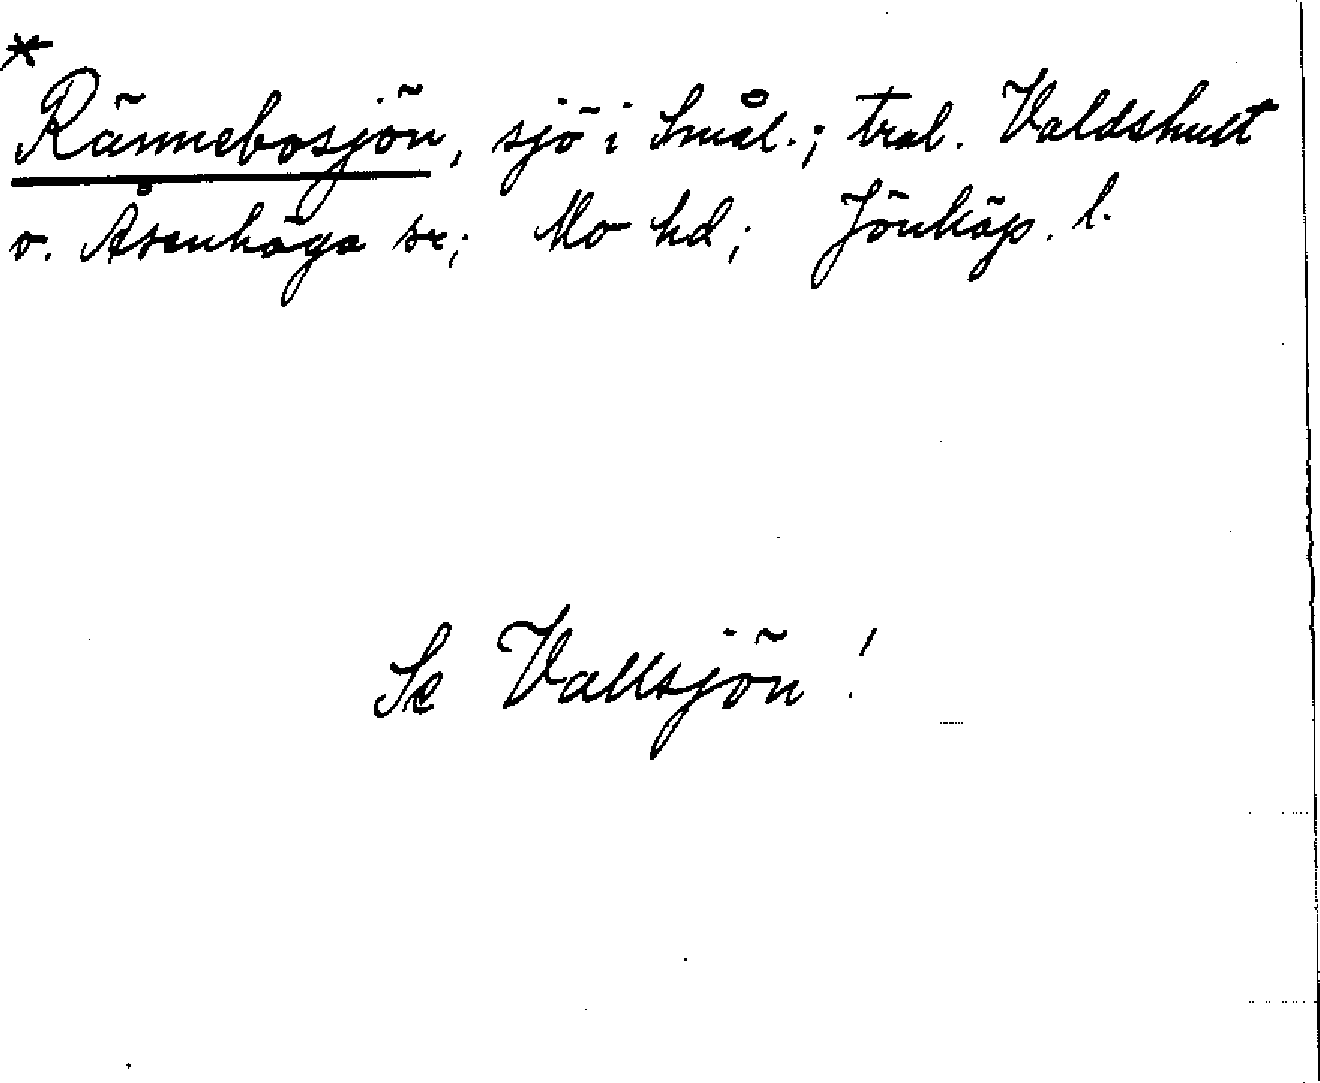 *
Rännebosjön, sjö i Smål.; tral. Valdshult
o. Åsenhöga sr; Mo hd; Jönköp. l.
Se Vallsjön!